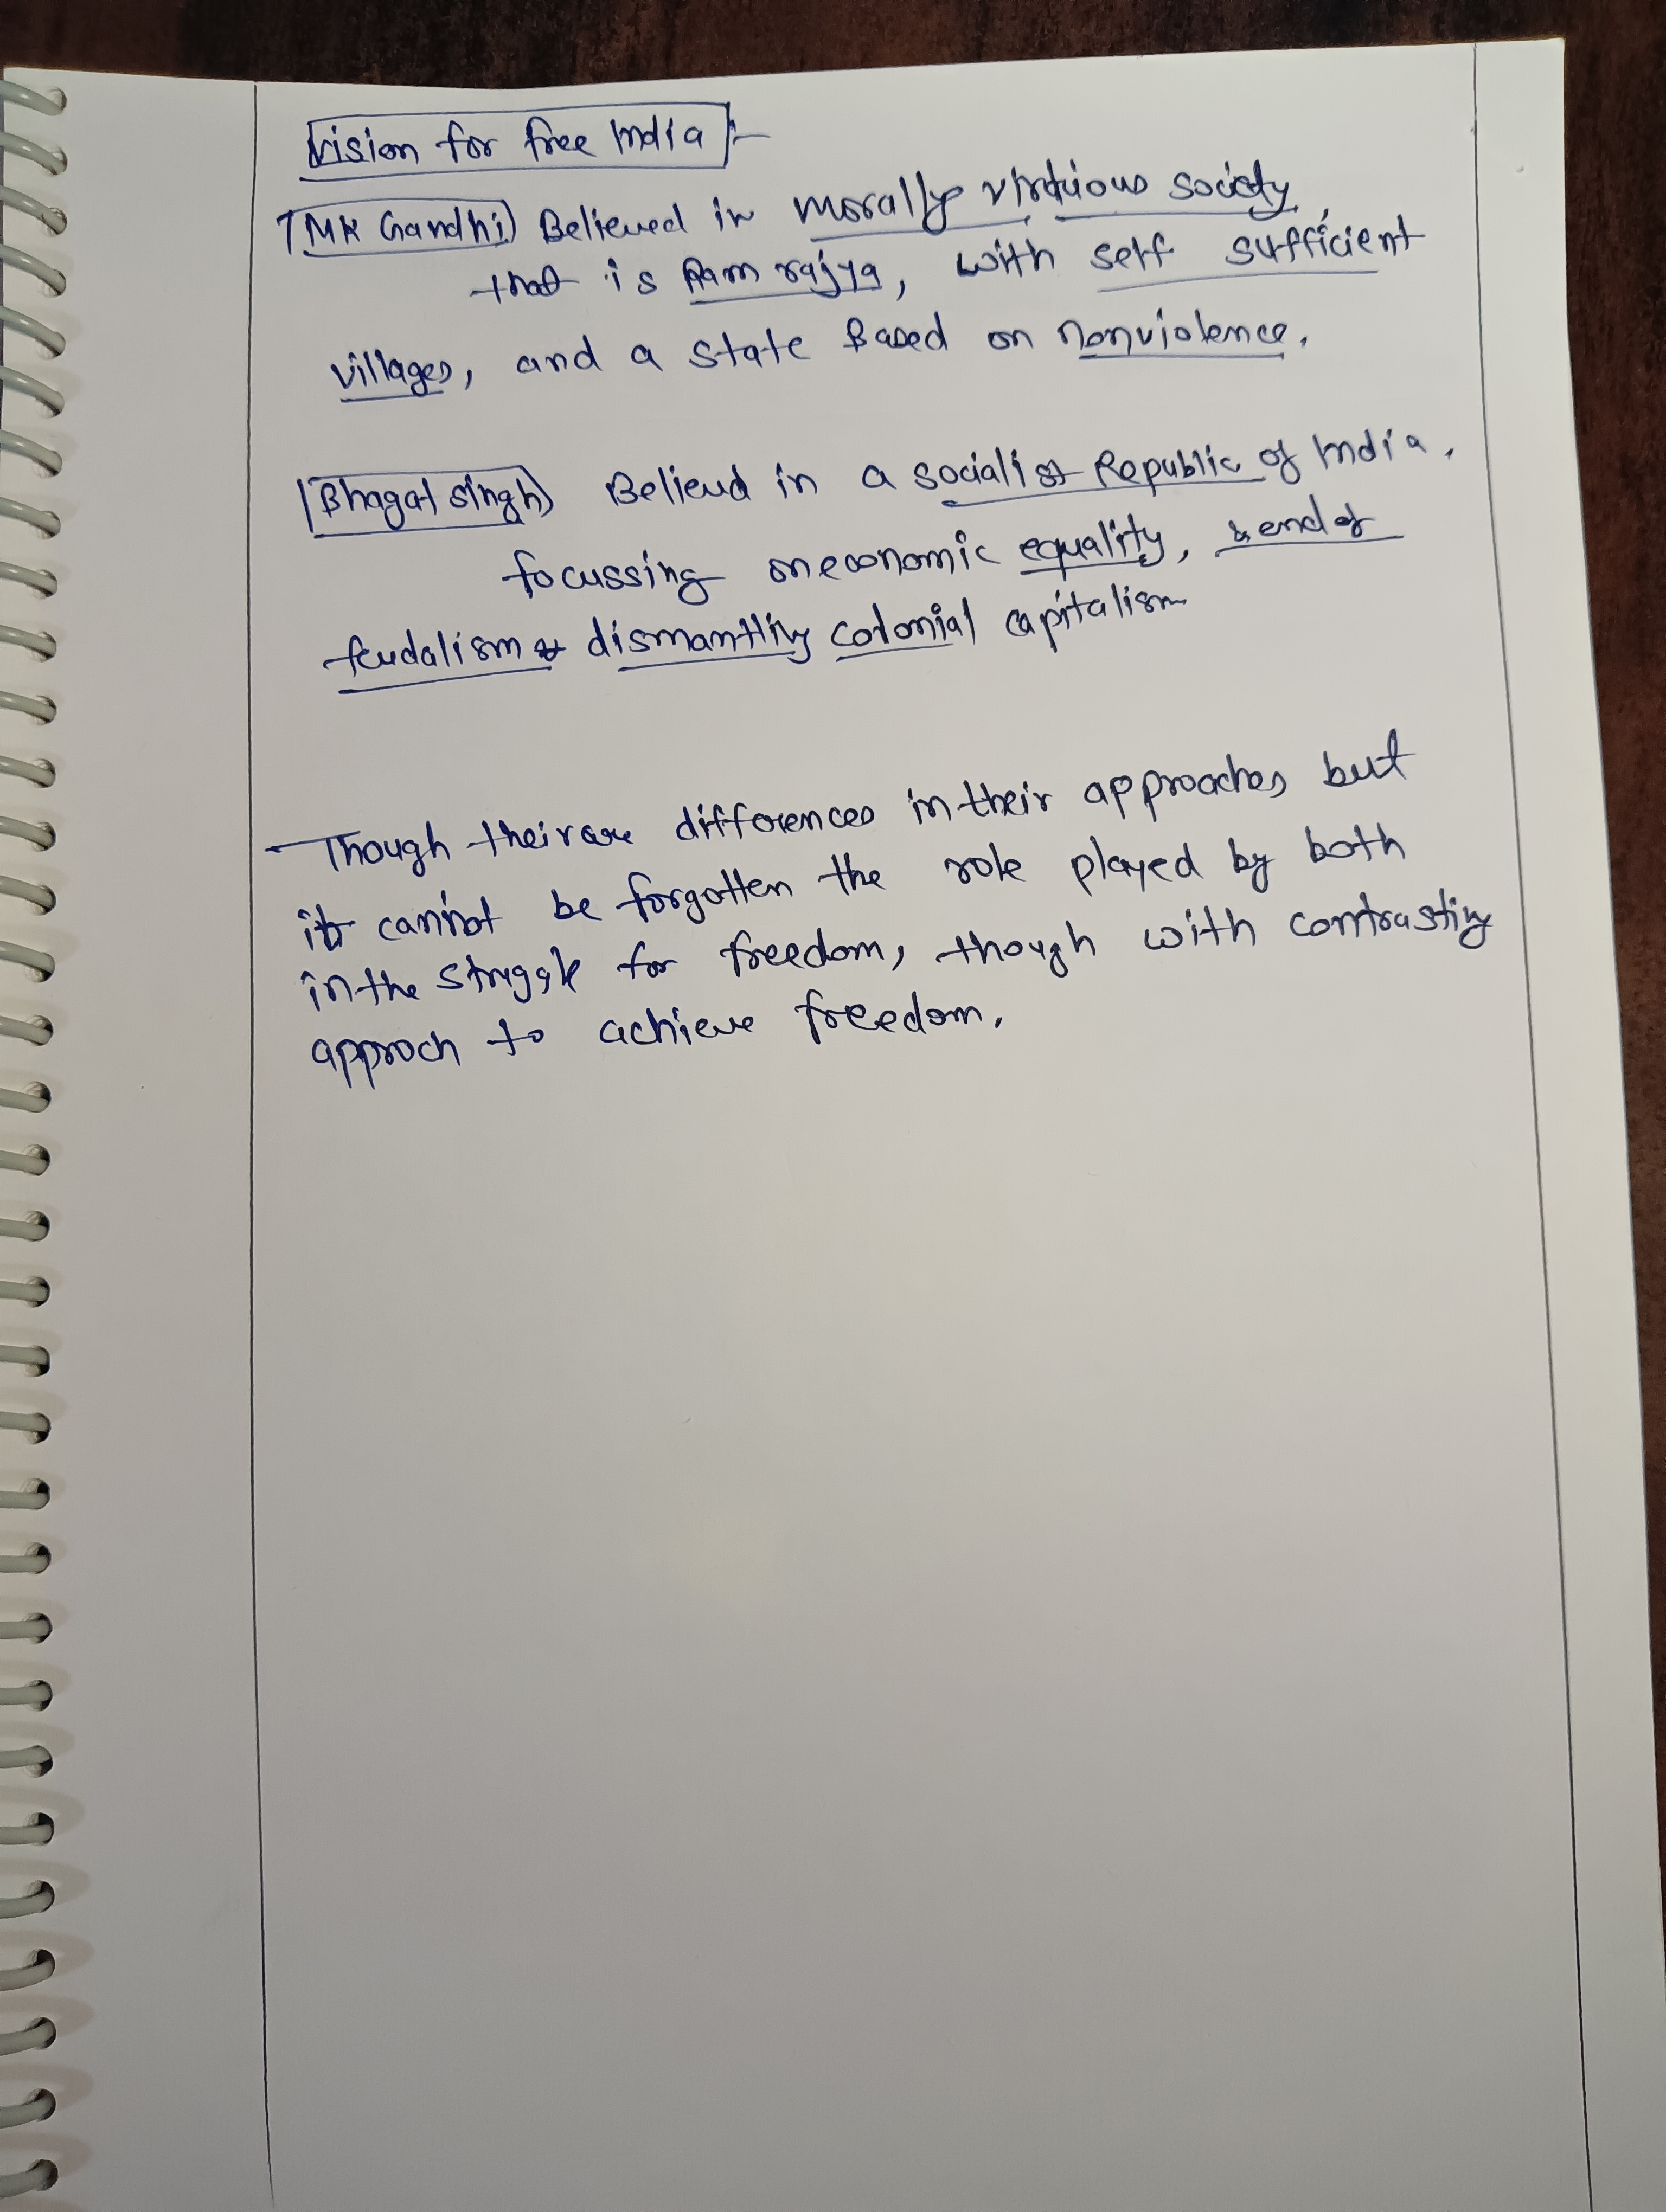 Vision for free India :-
MK Gandhi) Believed in morally virtuious society,
that is Ram rajya, with self sufficient
villages, and a state Based on nonviolence.
Bhagat singh) Believd in a socialist Republic of India,
focussing on economic equality, & end of
feudalism & dismantling colonial capitalism
- Though their are differences in their approaches but
it cannot be forgotten the role played by both
in the struggle for freedom, though with contrasting
approch to achieve freedom.